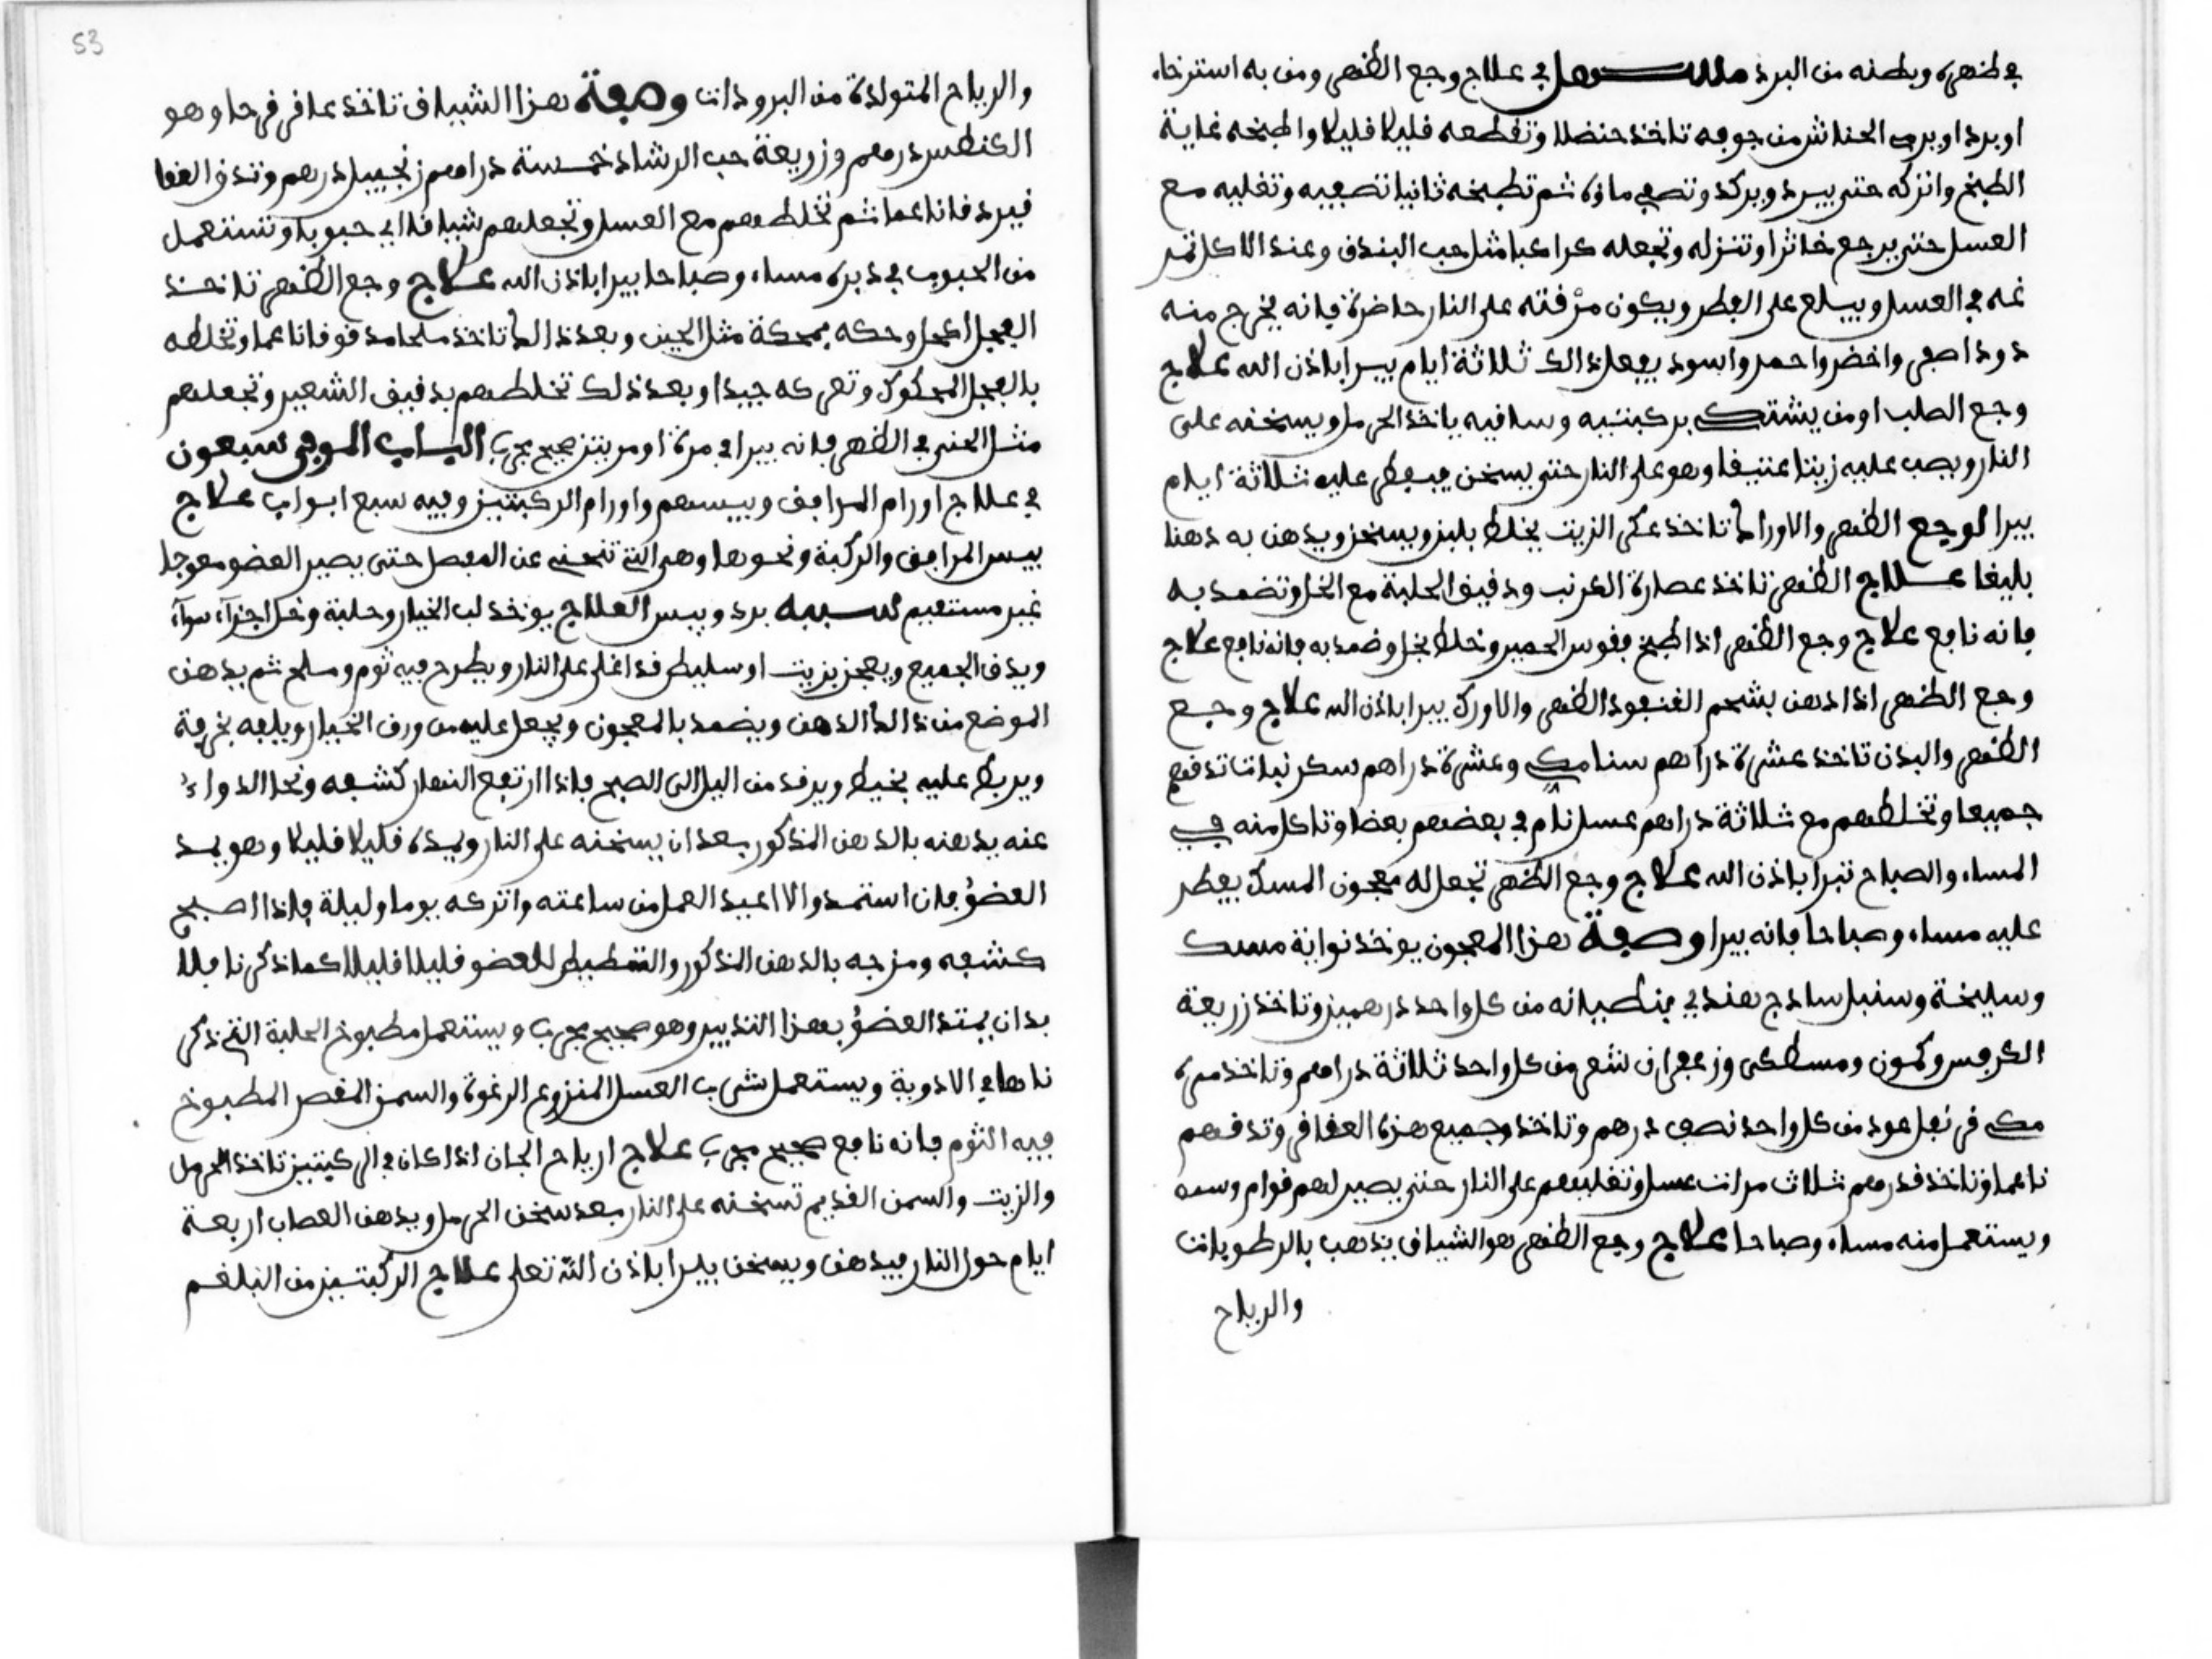 في ظهره وبطنه من البرد مسهل في علاج وجع الظهر ومن به استرخاء
او برد او يرمي الحناش من جوفه تاخذ حنضلا وتقطعه قليلا قليلا واطبخه غاية
الطبخ واتركه حتى يبرد ويركد وتصفي ماؤه ثم تطبخه ثانيا تصفيه وتغليه مع
العسل حتى يرجع خاثرا وتنزله وتجعله كراكبا مثل حب البندق وعند الاكل
غمه في العسل ويبلع على الفطر ويكون مرقته على النار حاضرة فانه يخرج منه
دود اصفر واخضر واحمر واسود يفعل ذالك ثلاثة ايام يبرا باذن الله علاج
وجع الصلب او من يشتك بركبتيه وساقيه ياخذ الحرمل ويسخنه على
النار ويصب عليه زيتا عتيقا وهو على النار حتى يسخن فيفطر عليه ثلاثة ايام
يبرا لوجع الظهر والاوراك تاخذ عكر الزيت يخلط بلبن ويسخن ويدهن به دهنا
بليغا علاج الظهر تاخذ عصارة الكرنب ودقيق الحلبة مع الخل وتضمد به
فانه نافع علاج وجع الظهر اذا طبخ فقوس الحمير وخلط بخل وضمد به فانه نافع علاج
وجع الظهر اذا ادهن بشحم القنفود الظهر والاورك يبرا باذن الله علاج وجع
الظهر والبدن تاخذ عشرة دراهم سنا مكي وعشرة دراهم سكر نبات تدقهم
جميعا وتخلطهم مع ثلاثة دراهم عسل تام في بعضهم بعضا وتاكل منه في
المساء والصباح تبرا باذن الله علاج وجع الظهر تجعل له معجون المسك يفطر
عليه مساء وصباحا فانه يبرا وصفة هذا المعجون يوخذ نواية مسك
وسليخة وسنبل ساذج هندي من كل واحد درهمين وتاخذ زريعة
الكرفس وكمون ومسطكى وزعفران شعر من كل واحد ثلاثة دراهم وتاخذ
مكي قرنفل عود من كل واحد نصف درهم وتاخذ وجميع هذه العقاقر وتدقهم
ناعما وتاخذ قدرهم ثلاث مرات عسل وتغليهم على النار حتى يصير لهم قوام
ويستعمل منه مساء وصباحا علاج وجع الظهر هو الشياف يذهب بالرطوبات
والرياح
53
والرياح المتولدة من البرودات وصفة هذا الشياف تاخذ عاقر قرحا وهو
الكنطس درهم وزريعة حب الرشاد خمسة دراهم زنجبيل درهم وتدق العقا
قير دقا ناعما ثم تخلطهم مع العسل وتجعلهم شيافا اي حبوبا وتستعمل
من الحبوب في دبره مساء وصباحا يبرا باذن الله علاج وجع الظهر تاخذ
الفجل اكحل وحكه بمحكة مثل الجبن وبعد ذالك تاخذ ملحا مدقوقا ناعما وتخلطه
بالفجل المحكوك وتعركه جيدا وبعد ذلك تخلطهم بدقيق الشعير وتجعلهم
مثل العنبر في الظهر فانه يبرا في مرة او مرتين صحيح مجرب الباب الموفي سبعون
في علاج اورام المرافق ويبسهم واورام الركبتين وفيه سبع ابواب علاج
يبس المرافق والركبة ونحوها وهي التي تنحني عن المفصل حتى يصير العضو معوجا
غير مستقيم سببه برد ويبس العلاج يوخذ لب الخيار وحلبة وخل اجزاء سواء
ويدق الجميع ويعجن بزيت او سليط قد اغلي على النار ويطرح فيه ثوم وملح ثم يدهن
الموضع من ذالك الدهن ويضمد بالمعجون ويجعل عليه من ورق الخيار ويلفه بخرقة
ويربط عليه بخيط ويرقد من اليل الى الصبح فاذا ارتفع النهار كشفه ونحا الدواء
عنه يدهنه بالدهن المذكور بعد ان يسخنه على النار ويمده قليلا قليلا وهو يمد
العضو فان استمد والا اعيد العمل من ساعته واتركه يوما وليلة فاذا اصبح
كشفه ومزجه بالدهن المذكور والتمطيط للعضو قليلا قليلا كما ذكرنا فلا
بد ان يمتد العضو بهذا التدبير وهو صحيح مجرب ويستعمل مطبوخ الحلبة التي ذكر
ناها في الادوية ويستعمل شرب العسل المنزوع الرغوة والسمن المقصر المطبوخ
فيه الثوم فانه نافع صحيح مجرب علاج ارياح الجان اذا كان في الركبتين تاخذ الحرمل
والزيت والسمن القديم تسخنه على النار بعد سخن الحرمل ويدهن العصاب اربعة
ايام حول النار فيدهن ويسخن يبرا باذن الله تعلى علاج الركبتين من البلغم